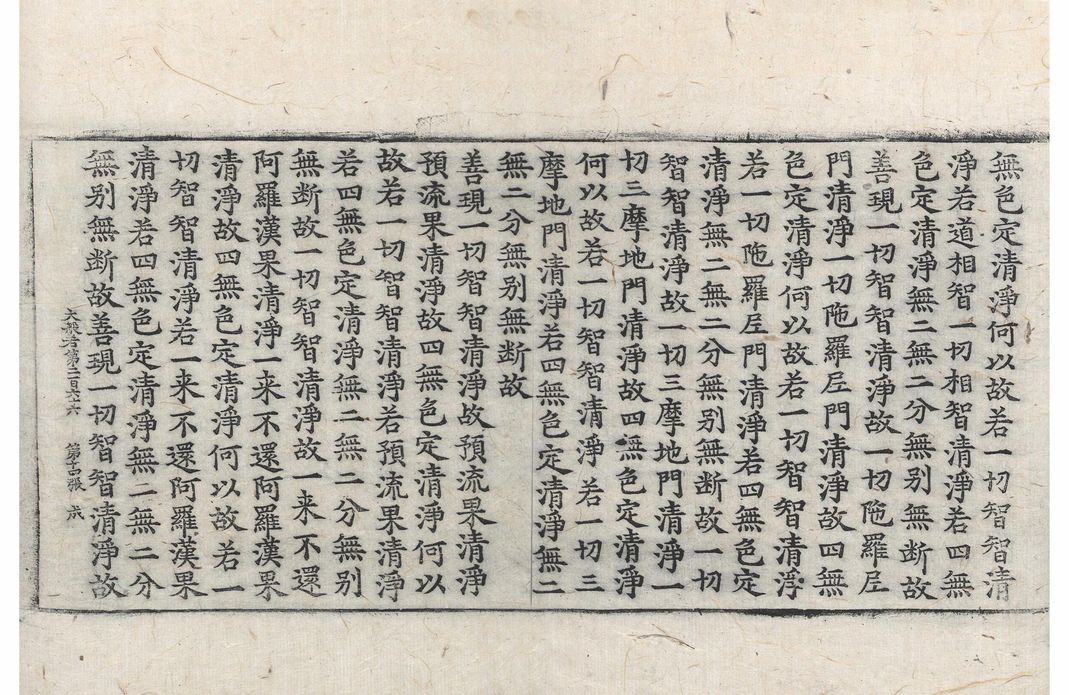 無色定清淨何以故若一切智智清
淨若道相智一切相智清淨若四無
色定清淨無二無二分無别無断故
善現一切智智清淨故一切陁羅尼
門清淨一切陁羅尼門清淨故四無
色定清淨何以故若一切智智清淨
若一切陁羅尼門清淨若四無色定
清淨無二無二分無别無断故一切
智智清淨故一切三摩地門清淨一
切三摩地門清淨故四無色定清淨
何以故若一切智智清淨若一切三
摩地門清淨若四無色定清淨無二
無二分無别無断故
善現一切智智清淨故預流果清淨
預流果清淨故四無色定清淨何以
故若一切智智清淨若預流果清淨
若四無色定清淨無二無二分無别
無断故一切智智清淨故一来不還
阿羅漢果清淨一来不還阿羅漢果
清淨故四無色定清淨何以故若一
切智智清淨若一来不還阿羅漢果
清淨若四無色定清淨無二無二分
無别無断故善現一切智智清淨故
大般若第二百六六 第十四張 成